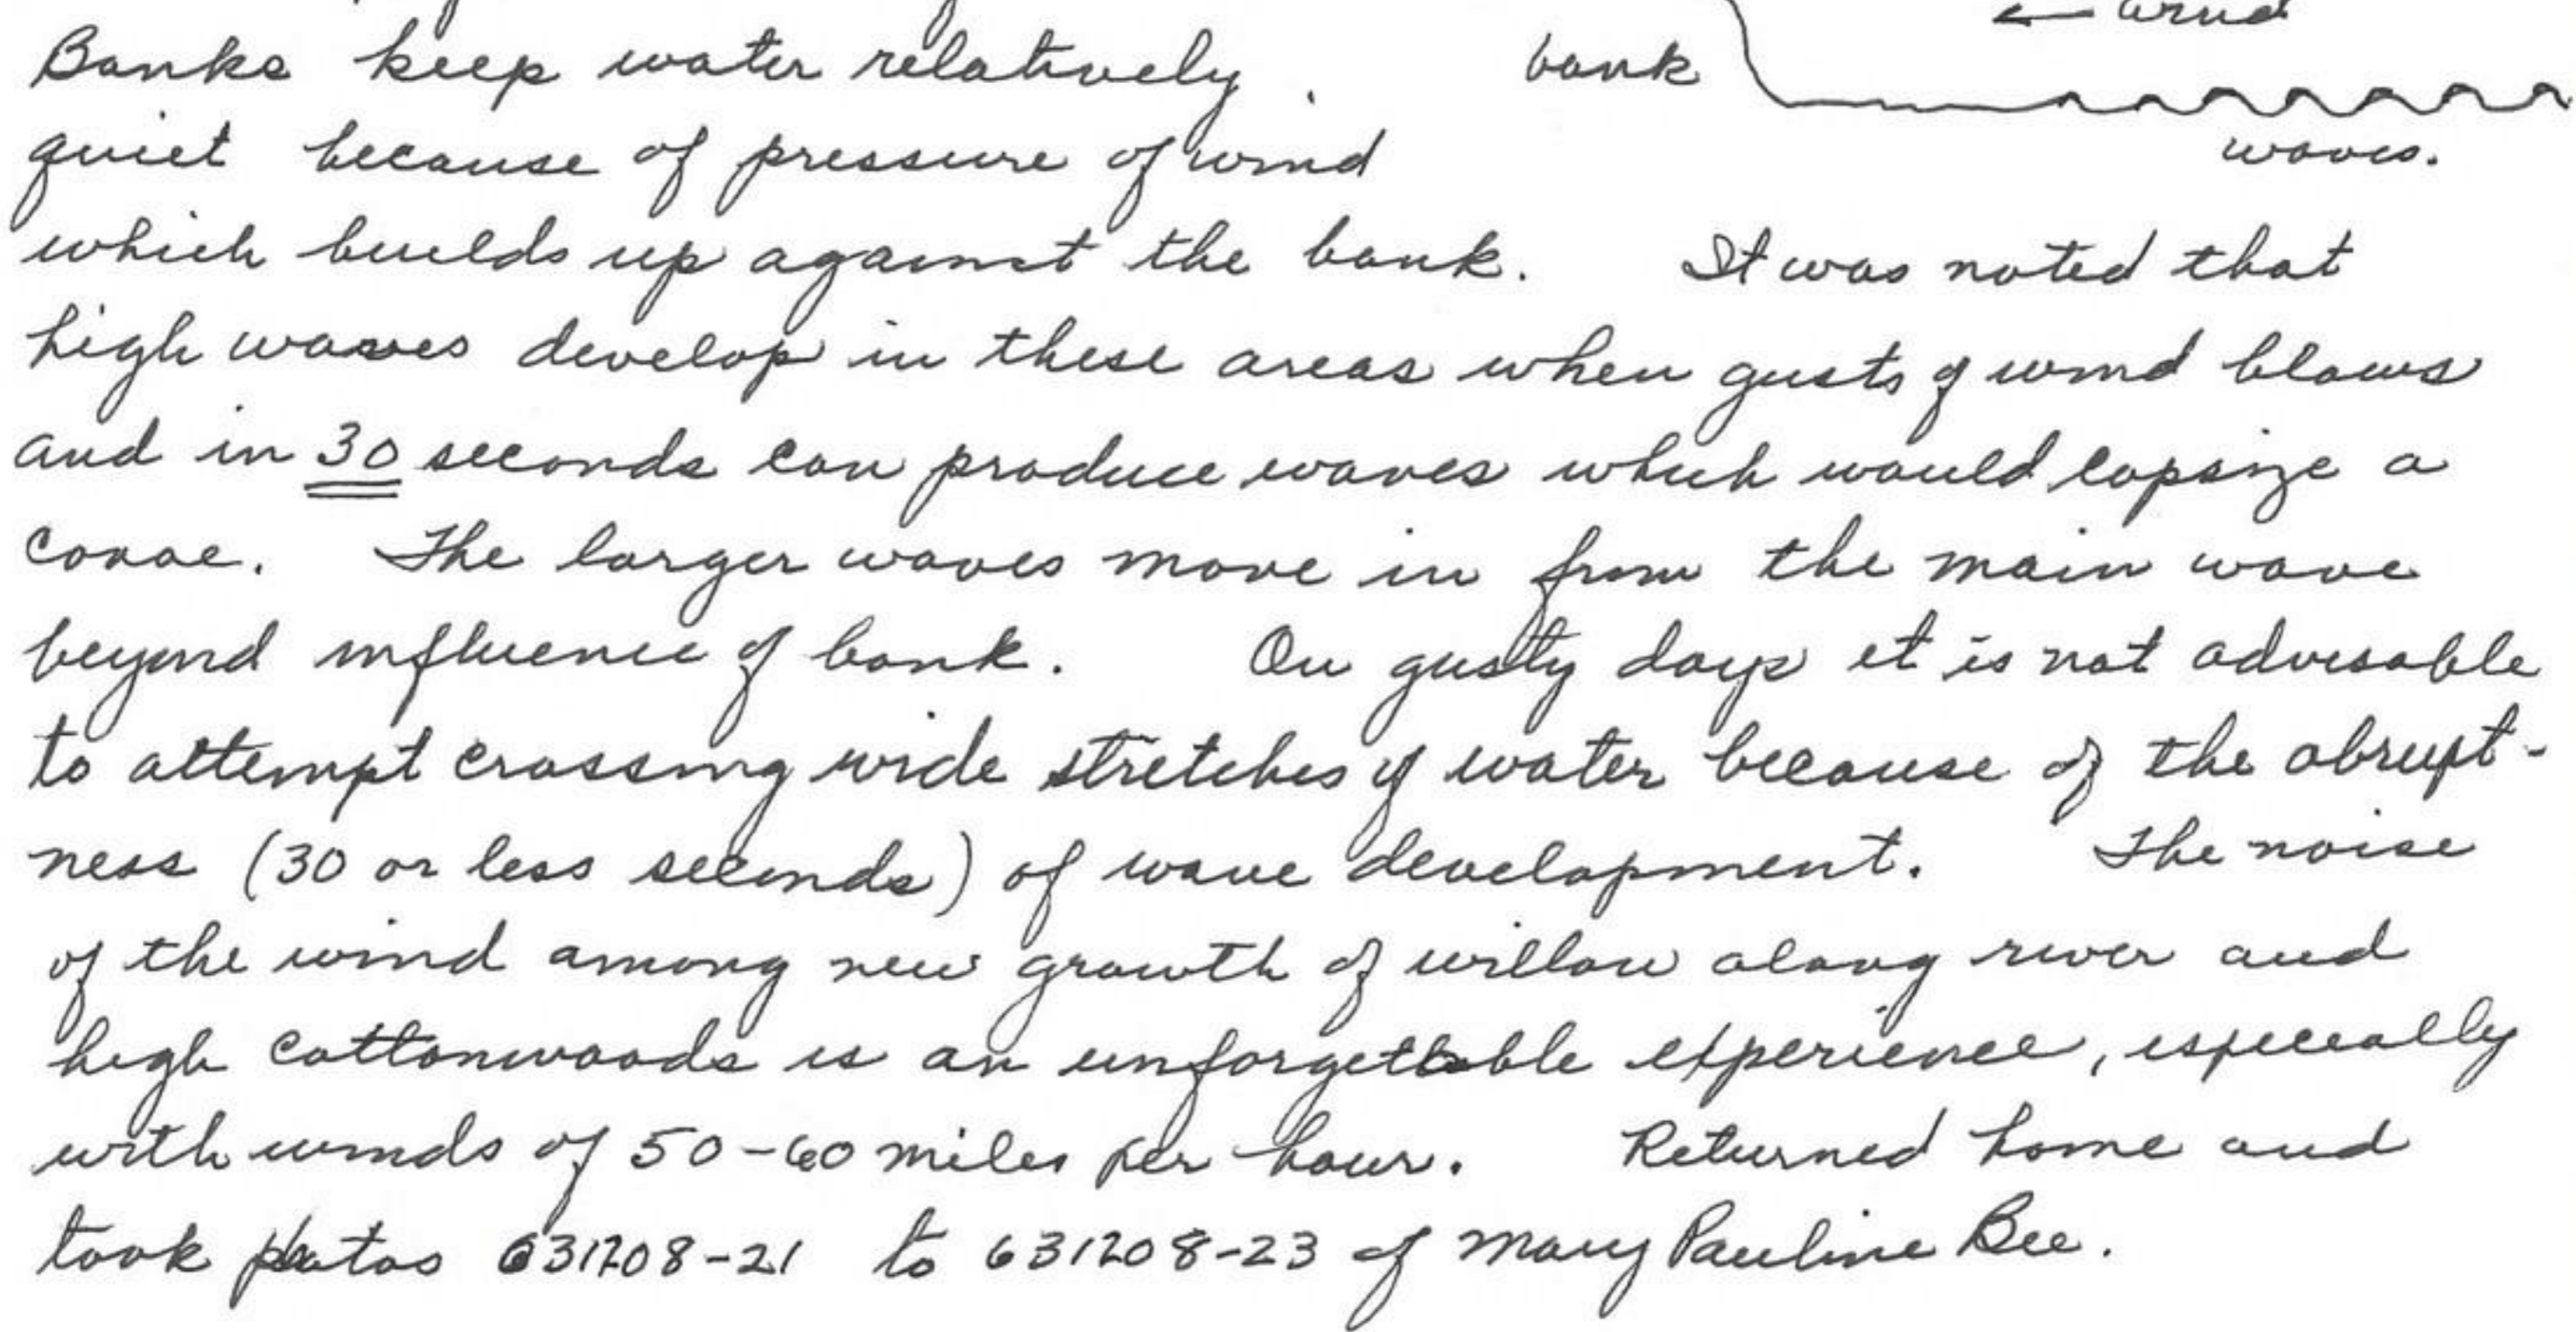 ← wind
Banks keep water relatively
bank
quiet because of pressure of wind
waves.
which builds up against the bank. It was noted that
high waves develop in these areas when gusts of wind blows
and in 30 seconds can produce waves which would capsize a
canoe. The larger waves move in from the main wave
beyond influence of bank. On gusty days it is not advisable
to attempt crossing wide stretches of water because of the abrupt-
ness (30 or less seconds) of wave development. The noise
of the wind among new growth of willow along river and
high cottonwoods is an unforgettable experience, especially
with winds of 50-60 miles per hour. Returned home and
took photos 631208-21 to 631208-23 of Mary Pauline Bee.